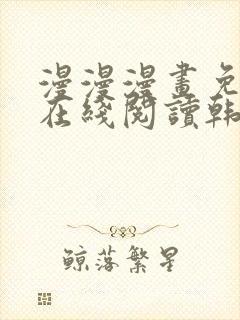 漫漫漫畫免
在綫閱讀韩
鲸落繁星